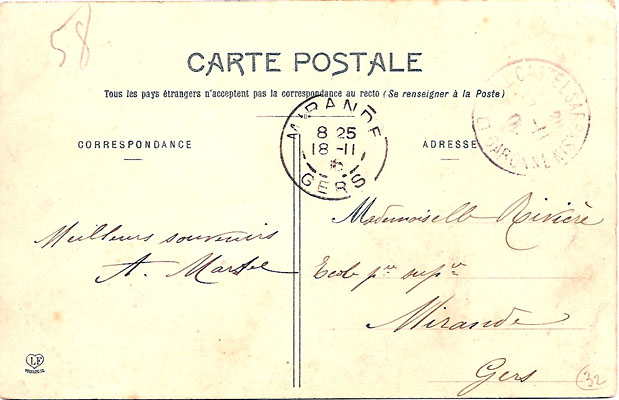 58
CARTE POSTALE
Tous les pays étrangers n'acceptent pas la correspondance au recto (Se renseigner à la Poste)
CORRESPONDANCE
ADRESSE
MIRANDE
8 25
18 -11
GERS
CASTELSAR
T GARONNE
Meilleurs souvenirs
A. Martel
Mademoiselle Rivière
Ecole pre supre
Mirande
Gers
LF
32